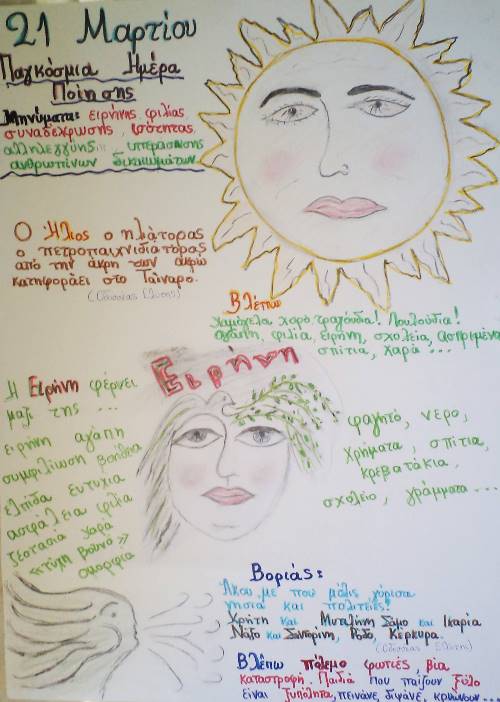 21 Μαρτίου
Παγκόσμια Ημέρα
Ποίησης
Μηνύματα: ειρήνης φιλίας
συναδέχρωσης, ισότητας
αλληλεγγύης υπεράσπισης
ανθρωπίνων δικαιωμάτων
Ο Ήλιος ο ηλιάτορας
ο πετροπαιχνιδιάτορας
από την άκρη των άκρω
κατηφοράει στο Ταίναρο.
(Οδυσσέας Ελύτης)
Βλέπω
χαμόγελα χορό τραγούδια! Λουλούδια!
αγάπη, φιλία, ειρήνη, σχολεία, ασπρισμένα
σπίτια, χαρά ...
Ειρήνη
Η Ειρήνη φέρνει
μαζί της ...
ειρήνη αγάπη
συμφιλίωση βοήθεια
ελπίδα ευτυχία
ασφάλεια φιλία
ζεστασία χαρά
«τύπη βουνό»
ομορφία
φαγητό, νερό,
χρήματα, σπίτια,
κρεβατάκια,
σχολείο, γράμματα ...
Βοριάς:
Άκου με που μόλις γύρισα
νησιά και πολιτείες!
Κρήτη και Μυτιλήνη Σάμο και Ικαρία
Νάξο και Σαντορίνη, Ρόδο, Κέρκυρα.
(Οδυσσέας Ελύτης)
Βλέπω πόλεμο φωτιές, βία
καταστροφή. Παιδιά που παίζουν ξύλο
είναι ξυπόλητα, πεινάνε, διψάνε, κρυώνουν ...